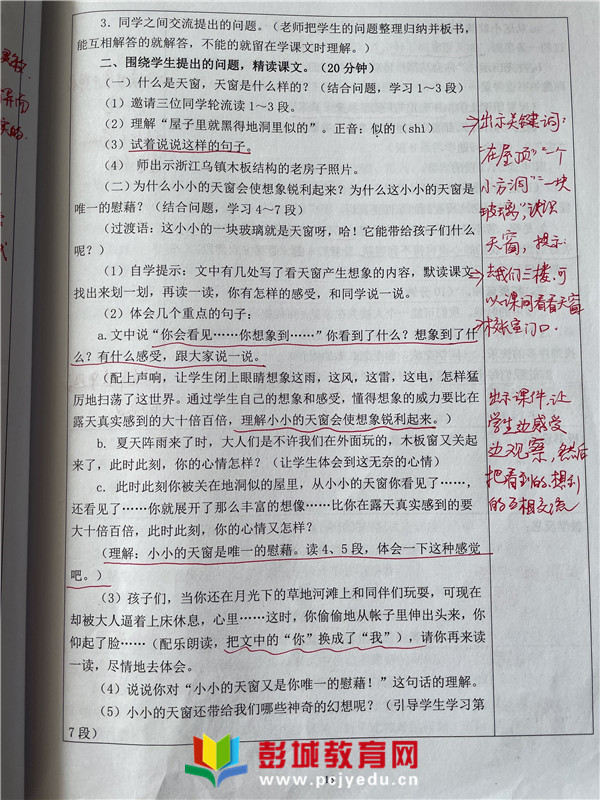 3. 同学之间交流提出的问题。（老师把学生的问题整理归纳并板书，
能互相解答的就解答，不能的就留在学课文时理解。）
二、围绕学生提出的问题，精读课文。（20 分钟）
（一）什么是天窗，天窗是什么样的？（结合问题，学习 1～3 段）
（1）邀请三位同学轮流读 1～3 段。
（2）理解“屋子里就黑得地洞里似的”。正音：似的（shì）
（3）试着说说这样的句子。
（4） 师出示浙江乌镇木板结构的老房子照片。
（二）为什么小小的天窗会使想象锐利起来？为什么这小小的天窗是
唯一的慰藉？（结合问题，学习 4～7 段）
（过渡语：这小小的一块玻璃就是天窗呀，哈！它能带给孩子们什么
呢？）
（1）自学提示：文中有几处写了看天窗产生想象的内容，默读课文
找出来划一划，再读一读，你有怎样的感受，和同学说一说。
（2）体会几个重点的句子：
a.文中说“你会看见……你想象到……”你看到了什么？想象到了什
么？有什么感受，跟大家说一说。
（配上声响，让学生闭上眼睛想象这雨，这风，这雷，这电，怎样猛
厉地扫荡了这世界。通过学生自己的想象和感受，懂得想象的威力要比在
露天真实感到的大十倍百倍，理解小小的天窗会使想象锐利起来。）
b. 夏天阵雨来了时，大人们是不许我们在外面玩的，木板窗又关起
来了，此时此刻，你的心情怎样？（让学生体会到这无奈的心情）
c. 此时此刻你被关在地洞似的屋里，从小小的天窗你看见了……，
还看见了……你就展开了那么丰富的想像……比你在露天真实感到的要
大十倍百倍，此时此刻，你的心情又怎样？
（理解：小小的天窗是唯一的慰藉。读 4、5 段，体会一下这种感觉
吧。）
（3）孩子们，当你还在月光下的草地河滩上和同伴们玩耍，可现在
却被大人逼着上床休息，心里……这时，你偷偷地从帐子里伸出头来，你
仰起了脸……（配乐朗读，把文中的“你”换成了“我”），请你再来读
一读，尽情地去体会。
（4）说说你对“小小的天窗又是你唯一的慰藉！”这句话的理解。
（5）小小的天窗还带给我们哪些神奇的幻想呢？（引导学生学习第
7 段）
出示关键词：
“在屋顶”“一个
小方洞”“一块
玻璃”，认识
天窗，提示
去我们三楼，可
以课间看看天窗
门口．
出示课件，让
学生边感受
边观察，然后
把看到的、想到
的互相交流
彭城教育网
www.pcjyedu.cn